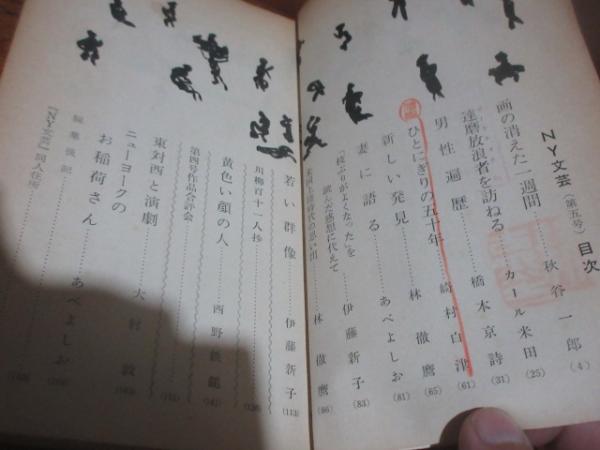 NY文芸（第五号）目次
画の消えた一週間 秋谷一郎 (4)
達磨放浪者を訪ねる カール米田 (25)
男性遍歴 橋本京詩 (31)
ひとにぎりの五十年 崎村白津 (61)
新しい発見 林徹鷹 (65)
妻に語る あべよしお (81)
読んだ感想に代えて 伊藤新子 (83)
林徹鷹 (86)
若い群像 伊藤新子 (113)
川柳百十一人抄
黄色い顔の人 西野鉄鍋 (141)
第四号作品合評会
東対西と演劇 大村敦
ニューヨークの
お稲荷さん あべよしお
編集後記
『NY文芸』同人住所